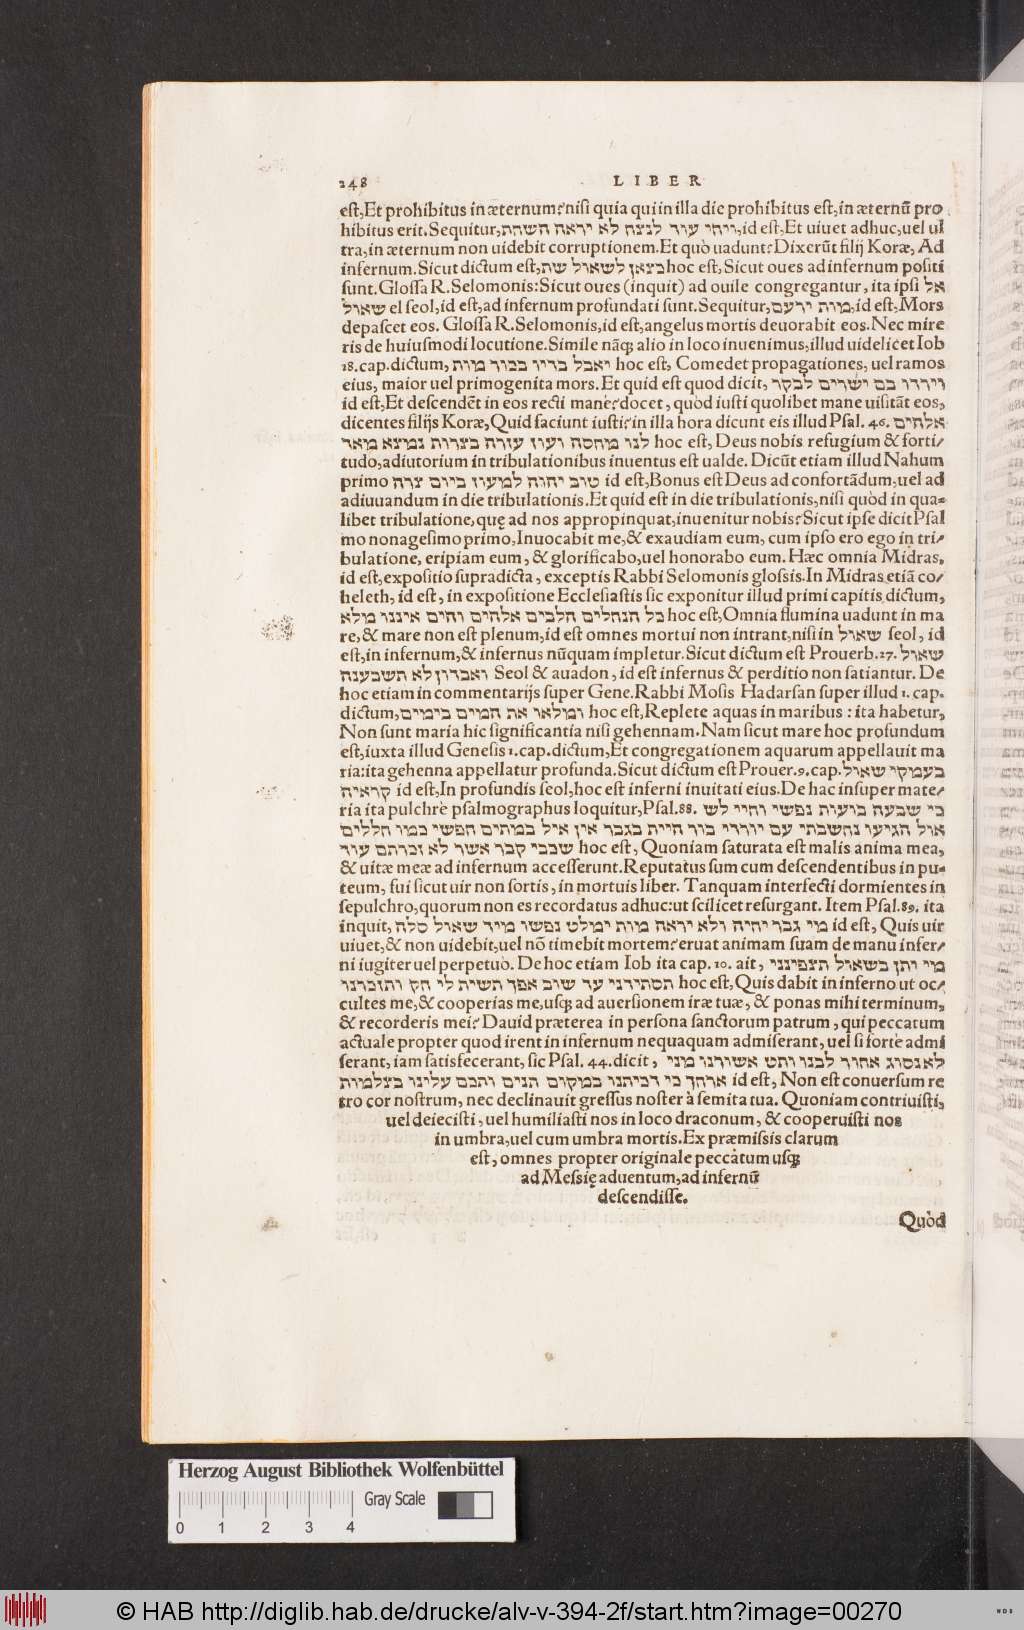 248 LIBER
est, Et prohibitus in æternum? nisi quia qui in illa die prohibitus est, in æternũ pro
hibitus erit. Sequitur, ויחי עוד לנצח לא יראה השחת, id est, Et uiuet adhuc, uel ul
tra, in æternum non uidebit corruptionem. Et quò uadunt? Dixerũt filij Koræ, Ad
infernum. Sicut dictum est, כצאן לשאול שת hoc est, Sicut oues ad infernum positi
sunt. Glossa R. Selomonis: Sicut oues (inquit) ad ouile congregantur, ita ipsi אל
שאול el seol, id est, ad infernum profundati sunt. Sequitur, מות ירעם, id est, Mors
depascet eos. Glossa R. Selomonis, id est, angelus mortis deuorabit eos. Nec mire
ris de huiusmodi locutione. Simile nãq; alio in loco inuenimus, illud uidelicet Iob
18. cap. dictum, יאכל בדיו בכור מות hoc est, Comedet propagationes, uel ramos
eius, maior uel primogenita mors. Et quid est quod dicit, וירדו בם ישרים לבקר
id est, Et descendẽt in eos recti mane? docet, quòd iusti quolibet mane uisitãt eos,
dicentes filijs Koræ, Quid faciunt iusti? in illa hora dicunt eis illud Psal. 46. אלהים
לנו מחסה ועוז עזרה בצרות נמצא מאד hoc est, Deus nobis refugium & forti/
tudo, adiutorium in tribulationibus inuentus est ualde. Dicũt etiam illud Nahum
primo טוב יהוה למעוז ביום צרה id est, Bonus est Deus ad confortãdum, uel ad
adiuuandum in die tribulationis. Et quid est in die tribulationis, nisi quòd in qua-
libet tribulatione, quę ad nos appropinquat, inuenitur nobis? Sicut ipse dicit Psal
mo nonagesimo primo, Inuocabit me, & exaudiam eum, cum ipso ero ego in tri/
bulatione, eripiam eum, & glorificabo, uel honorabo eum. Hæc omnia Midras,
id est, expositio supradicta, exceptis Rabbi Selomonis glossis. In Midras etiã co/
heleth, id est, in expositione Ecclesiastis sic exponitur illud primi capitis dictum,
כל הנחלים הלכים אל הים והים איננו מלא hoc est, Omnia flumina uadunt in ma
re, & mare non est plenum, id est omnes mortui non intrant, nisi in שאול seol, id
est, in infernum, & infernus nũquam impletur. Sicut dictum est Prouerb. 27. שאול
ואבדון לא תשבענה Seol & auadon, id est infernus & perditio non satiantur. De
hoc etiam in commentarijs super Gene. Rabbi Mosis Hadarsan super illud 1. cap.
dictum, ומלאו את המים בימים hoc est, Replete aquas in maribus : ita habetur,
Non sunt maria hic significantia nisi gehennam. Nam sicut mare hoc profundum
est, iuxta illud Genesis 1. cap. dictum, Et congregationem aquarum appellauit ma
ria: ita gehenna appellatur profunda. Sicut dictum est Prouer. 9. cap. בעמקי שאול
קראיה id est, In profundis seol, hoc est inferni inuitati eius. De hac insuper mate/
ria ita pulchrè psalmographus loquitur, Psal. 88. כי שבעה ברעות נפשי וחיי לש
אול הגיעו נחשבתי עם יורדי בור הייתי כגבר אין איל במתים חפשי כמו חללים
שכבי קבר אשר לא זכרתם עוד hoc est, Quoniam saturata est malis anima mea,
& uitæ meæ ad infernum accesserunt. Reputatus sum cum descendentibus in pu-
teum, fui sicut uir non fortis, in mortuis liber. Tanquam interfecti dormientes in
sepulchro, quorum non es recordatus adhuc: ut scilicet resurgant. Item Psal. 89. ita
inquit, מי גבר יחיה ולא יראה מות ימלט נפשו מיד שאול סלה id est, Quis uir
uiuet, & non uidebit, uel nõ timebit mortem? eruat animam suam de manu infer/
ni iugiter uel perpetuò. De hoc etiam Iob ita cap. 10. ait, מי יתן בשאול תצפינני
תסתירני עד שוב אפך תשית לי חק ותזכרני hoc est, Quis dabit in inferno ut oc/
cultes me, & cooperias me, usq; ad auersionem iræ tuæ, & ponas mihi terminum,
& recorderis mei? Dauid præterea in persona sanctorum patrum, qui peccatum
actuale propter quod irent in infernum nequaquam admiserant, uel si fortè admi
serant, iam satisfecerant, sic Psal. 44. dicit, לא נסוג אחור לבנו ותט אשורנו מני
ארחך כי דכיתנו במקום תנים ותכס עלינו בצלמות id est, Non est conuersum re
tro cor nostrum, nec declinauit gressus noster à semita tua. Quoniam contriuisti,
uel deiecisti, uel humiliasti nos in loco draconum, & cooperuisti nos
in umbra, uel cum umbra mortis. Ex præmissis clarum
est, omnes propter originale peccatum usq;
ad Messię aduentum, ad infernũ
descendisse.
Quòd
Herzog August Bibliothek Wolfenbüttel
Gray Scale
0 1 2 3 4
© HAB http://diglib.hab.de/drucke/alv-v-394-2f/start.htm?image=00270